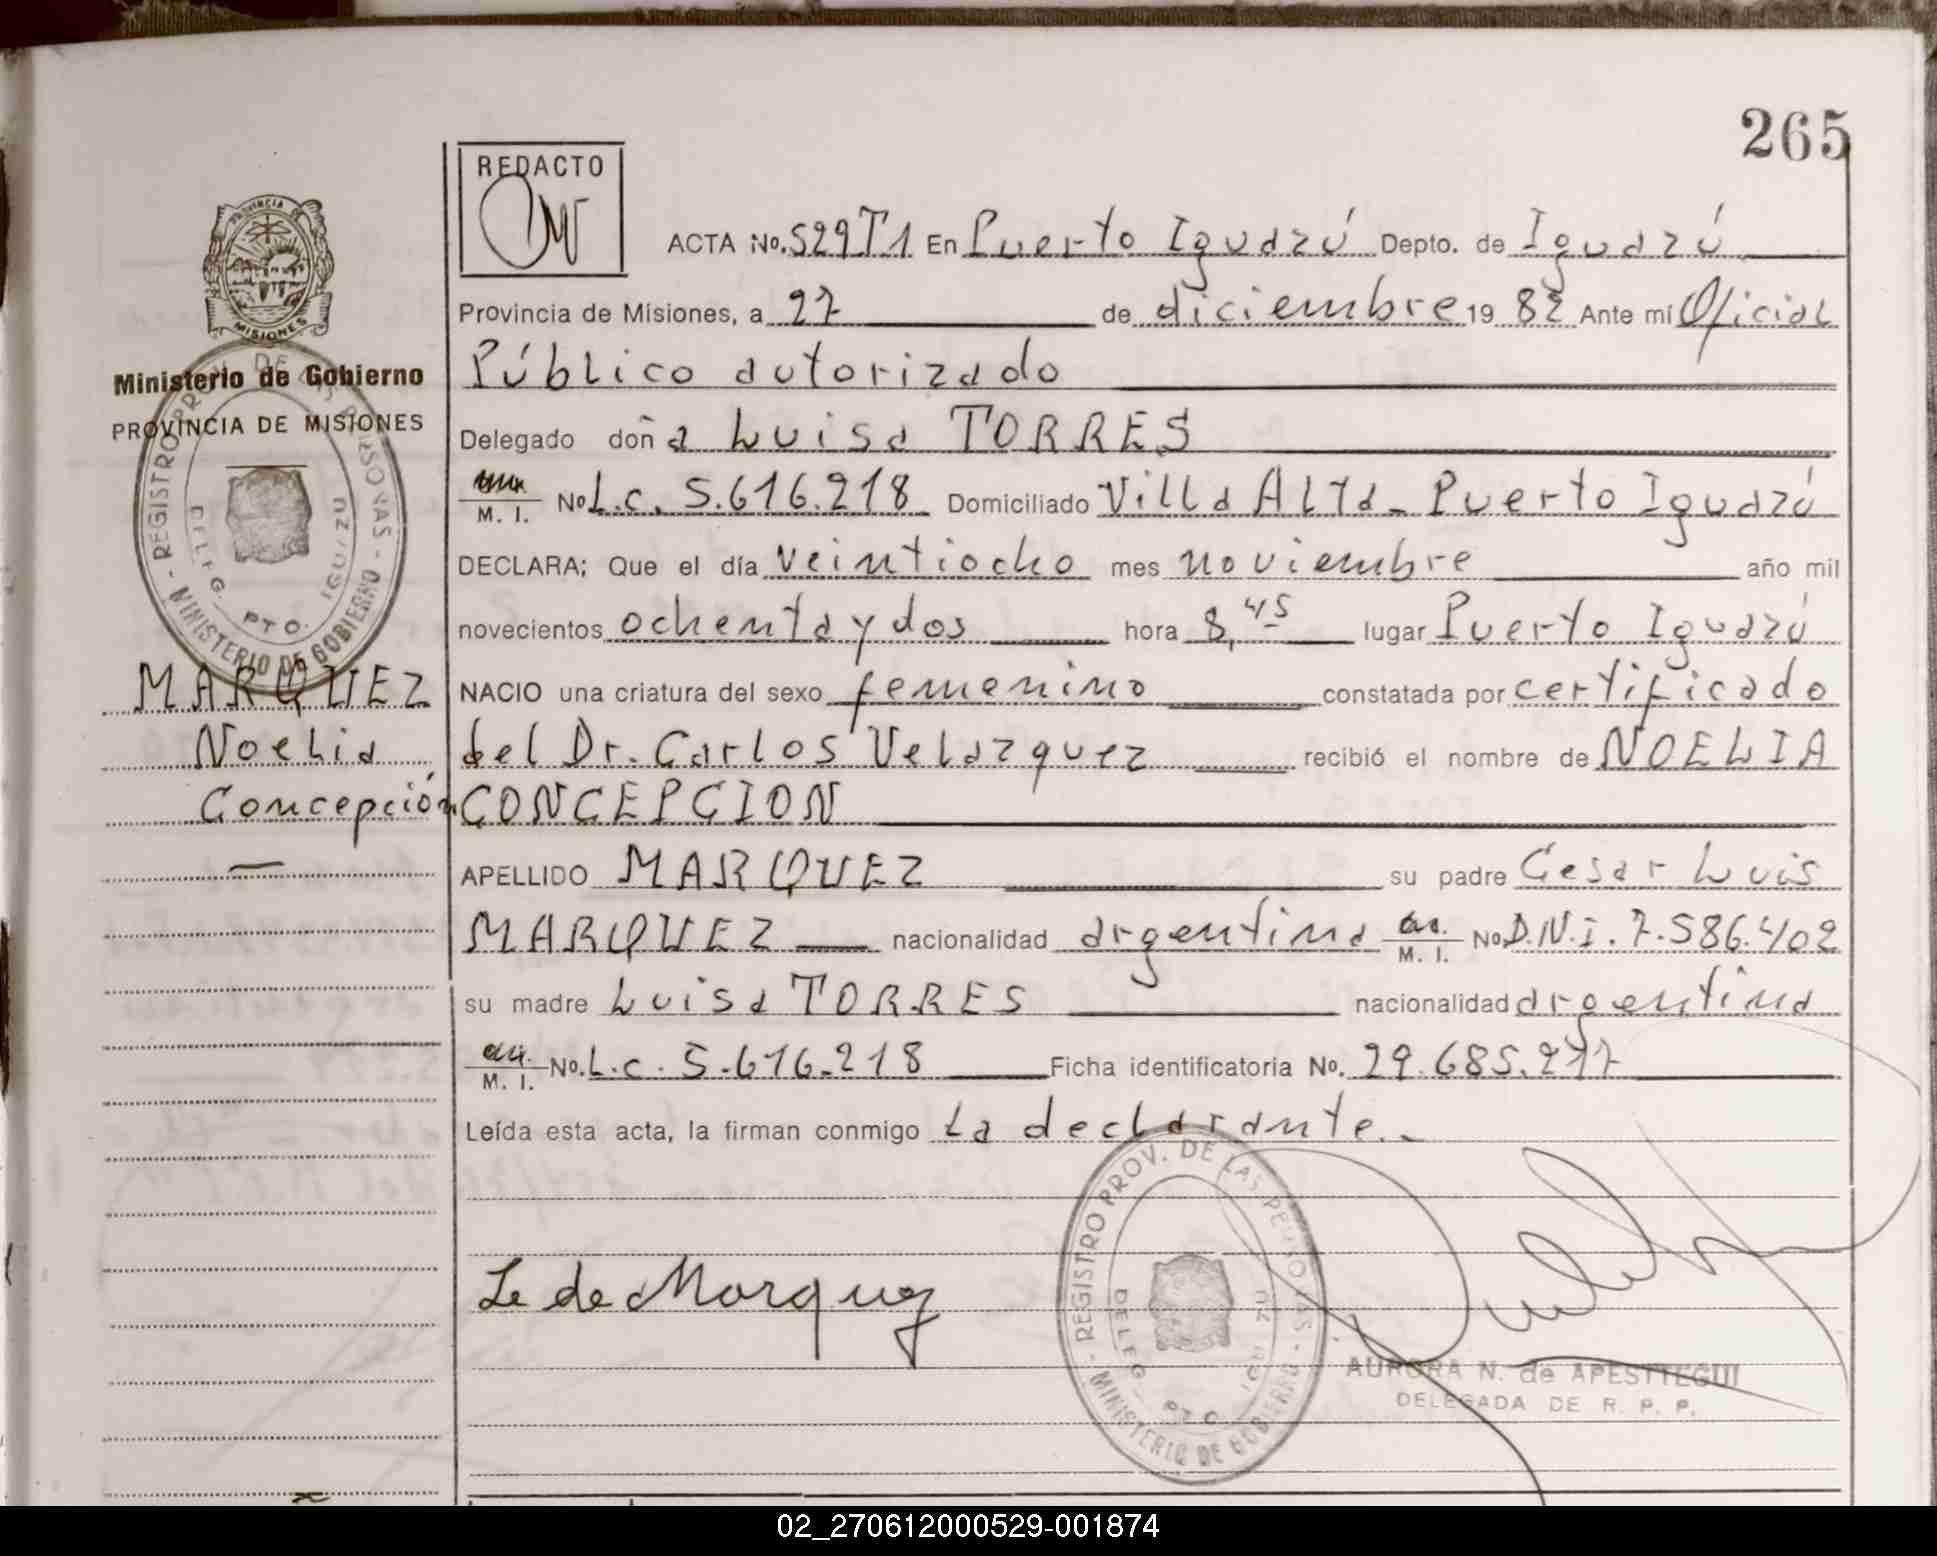 265
REDACTO
ACTA No. 529T1 En Puerto Iguazú Depto. de Iguazú
PROVINCIA DE
MISIONES
Provincia de Misiones, a 27 de diciembre 19 82 Ante mí Oficial
Ministerio de Gobierno
Público autorizado
PROVINCIA DE MISIONES
Delegado doña Luisa TORRES
M. I. No L.C. 5.616.218 Domiciliado Villa Alta - Puerto Iguazú
DECLARA; Que el día veintiocho mes noviembre año mil
novecientos ochenta y dos hora 8,45 lugar Puerto Iguazú
REGISTRO PROV. DE LAS PERSONAS - MINISTERIO DE GOBIERNO -
DELEG. PTO. IGUAZU
MARQUEZ
Noelia
Concepción
NACIO una criatura del sexo femenino constatada por certificado
del Dr. Carlos Velazquez recibió el nombre de NOELIA
CONCEPCION
APELLIDO MARQUEZ su padre Cesar Luis
MARQUEZ nacionalidad argentina M. I. No D.N.I. 7.586.402
su madre Luisa TORRES nacionalidad argentina
M. I. No. L.C. 5.616.218 Ficha identificatoria No. 29.685.277
Leída esta acta, la firman conmigo La declarante.-
REGISTRO PROV. DE LAS PERSONAS - MINISTERIO DE GOBIERNO -
DELEG. PTO. IGUAZU
de Marquez
AURORA N. de APESTTEGUI
DELEGADA DE R. P. P.
02_270612000529-001874